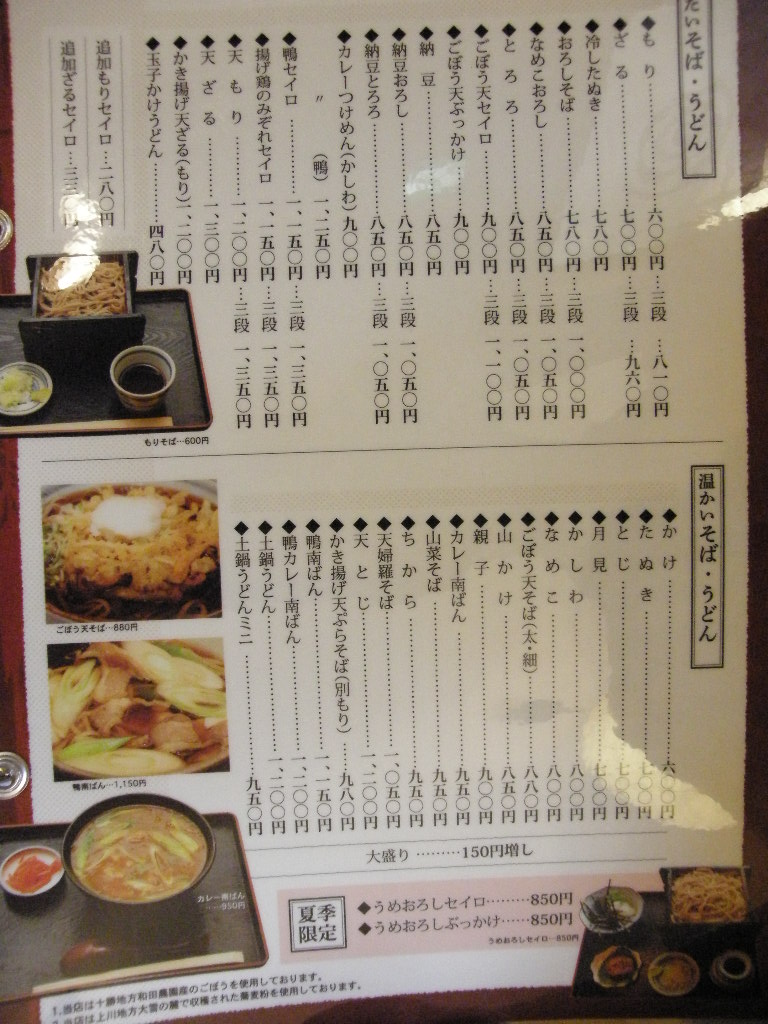 たいそば・うどん
◆もり……六〇〇円…三段…八一〇円
◆ざる……七〇〇円…三段…九六〇円
◆冷したぬき……七八〇円
◆おろしそば……七八〇円…三段 一、〇〇〇円
◆なめこおろし……八五〇円…三段 一、〇五〇円
◆とろろ……八五〇円…三段 一、〇五〇円
◆ごぼう天セイロ……九〇〇円…三段 一、一〇〇円
◆ごぼう天ぶっかけ……九〇〇円
◆納豆……八五〇円
◆納豆おろし……八五〇円…三段 一、〇五〇円
◆納豆とろろ……八五〇円…三段 一、〇五〇円
◆カレーつけめん(かしわ)九〇〇円
〃 (鴨) 一、二五〇円
◆鴨セイロ……一、一五〇円…三段 一、三五〇円
◆揚げ鶏のみぞれセイロ 一、一五〇円…三段 一、三五〇円
◆天もり……一、二〇〇円…三段 一、三五〇円
◆天ざる……一、三〇〇円
◆かき揚げ天ざる(もり)一、二〇〇円
◆玉子かけうどん……四八〇円
追加もりセイロ…二八〇円
追加ざるセイロ…三三〇円
もりそば…600円
温かいそば・うどん
◆かけ……六〇〇円
◆たぬき……七〇〇円
◆とじ……七〇〇円
◆月見……七〇〇円
◆かしわ……八〇〇円
◆なめこ……八〇〇円
◆ごぼう天そば(太・細)……八八〇円
◆山かけ……八五〇円
◆親子……九〇〇円
◆カレー南ばん……九五〇円
◆山菜そば……九五〇円
◆ちから……九五〇円
◆天婦羅そば……一、〇五〇円
◆天とじ……一、二〇〇円
◆かき揚げ天ぷらそば(別もり)……九八〇円
◆鴨南ばん……一、一五〇円
◆鴨カレー南ばん……一、二〇〇円
◆土鍋うどん……一、二〇〇円
◆土鍋うどんミニ……九五〇円
ごぼう天そば…880円
鴨南ばん…1,150円
カレー南ばん
……950円
大盛り………150円増し
夏季
限定
◆うめおろしセイロ………850円
◆うめおろしぶっかけ……850円
うめおろしセイロ…850円
1.当店は十勝地方和田農園産のごぼうを使用しております。
当店は上川地方大雪の麓で収穫された蕎麦粉を使用しております。